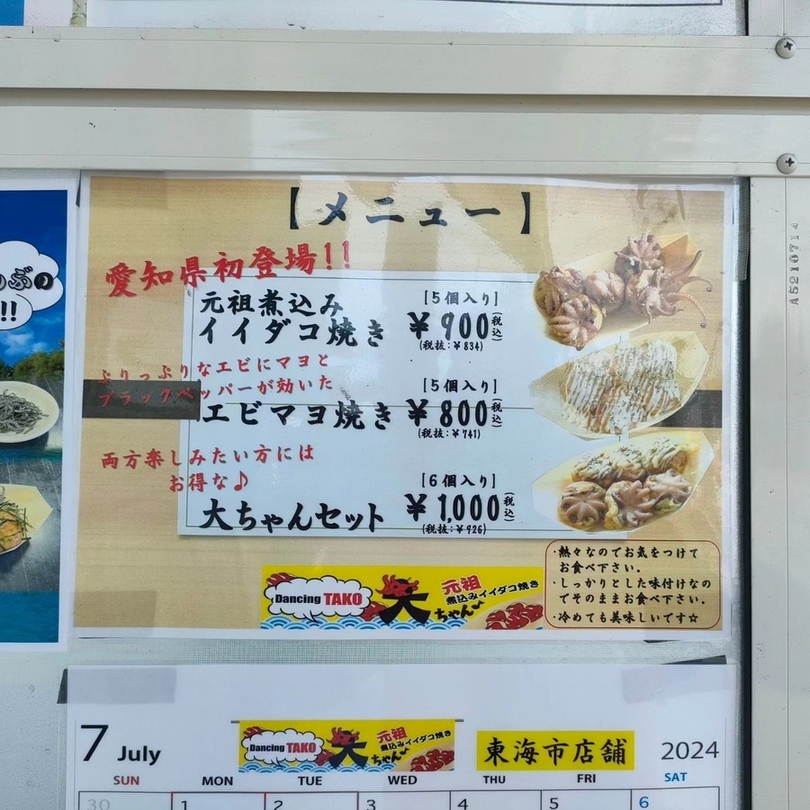 【メニュー】
愛知県初登場!!
元祖煮込み
イイダコ焼き
[5個入り]
￥900(税込)
(税抜:￥834)
ぷりっぷりなエビにマヨと
ブラックペッパーが効いた
エビマヨ焼き
[5個入り]
￥800(税込)
(税抜:￥741)
両方楽しみたい方には
お得な♪
大ちゃんセット
[6個入り]
￥1,000(税込)
(税抜:￥926)
・熱々なのでお気をつけて
お食べ下さい。
・しっかりとした味付けなの
でそのままお食べ下さい。
・冷めても美味しいです☆
Dancing TAKO
大ちゃん♪
元祖
煮込みイイダコ焼き
ぶの
!!
A5210714
7 July
Dancing TAKO
大ちゃん♪
元祖
煮込みイイダコ焼き
東海市店舗
2024
SUN MON TUE WED THU FRI SAT
30 1 2 3 4 5 6